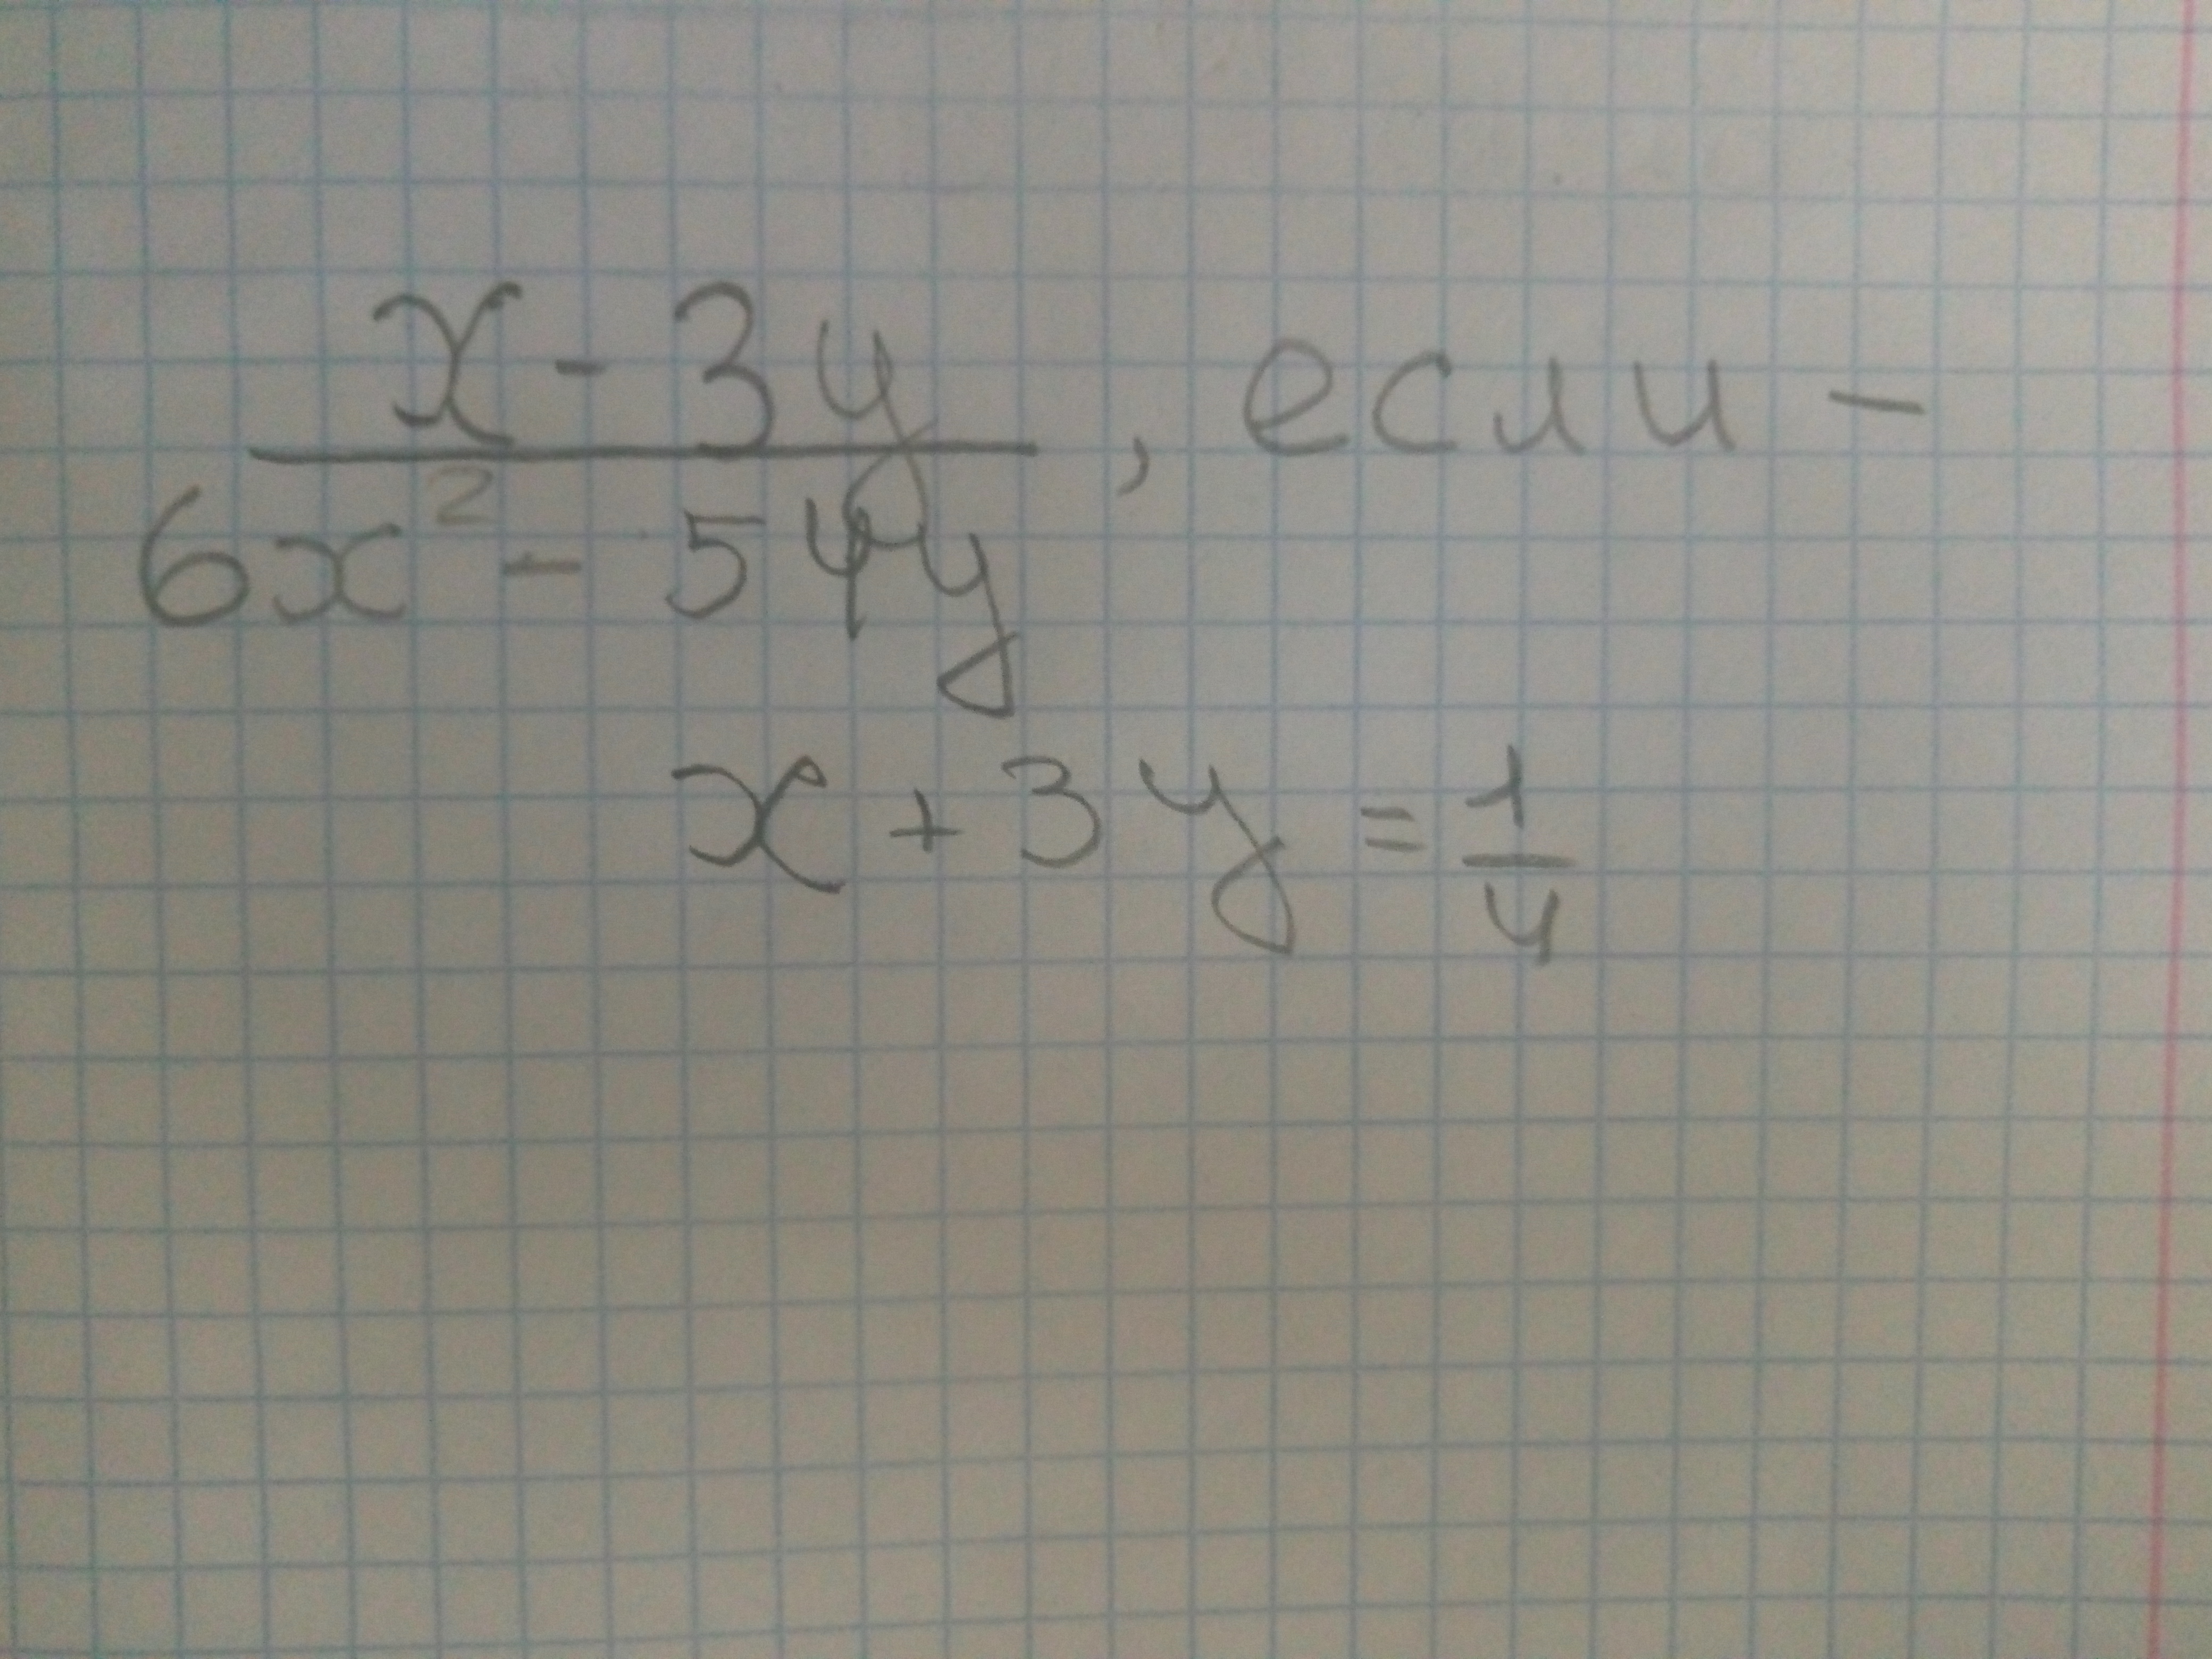 x - 3y
6x² - 54y , если -
x + 3y = 1/4